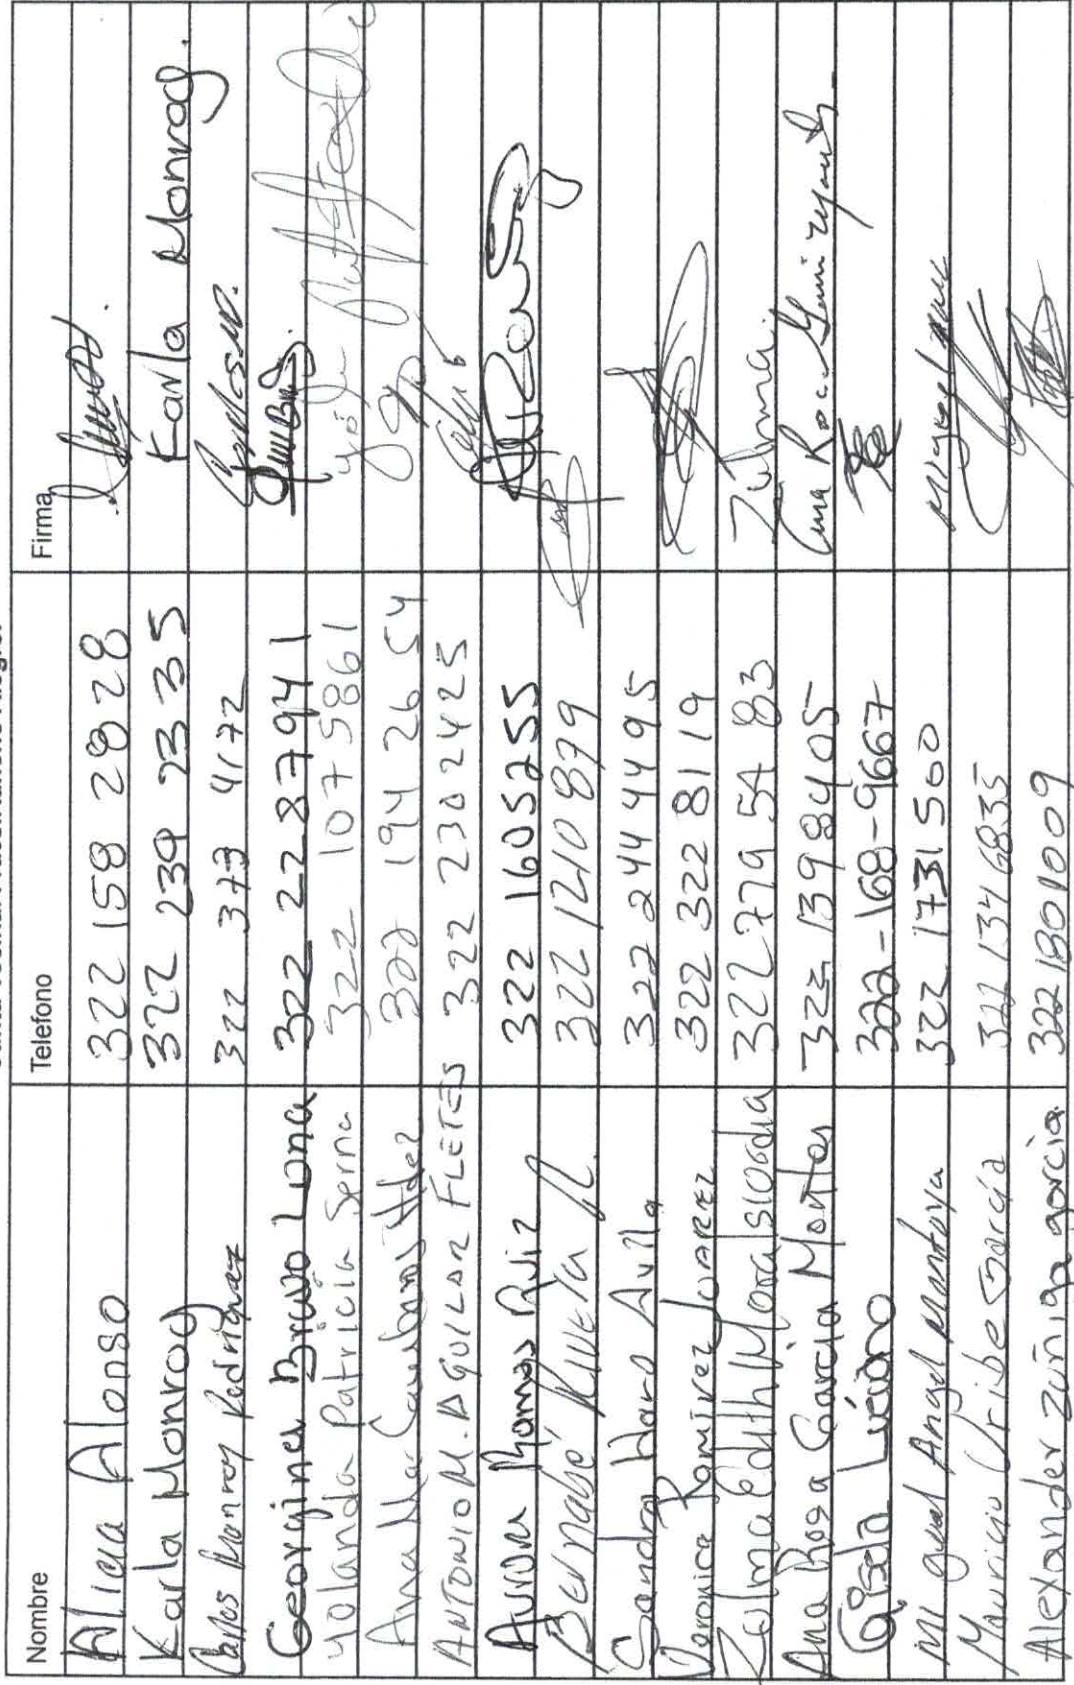 Nombre Telefono Firma
Alicia Alonso 322 158 28 28
Karla Monroy 322 239 23 35 Karla Monroy.
Carlos Monroy Rodriguez 322 373 4172
Georgina Bravo Lona 322 22 87941
Yolanda Patricia Serna 322 1075861
Ana Ma 322 194 26 54
ANTONIO M. AGUILAR FLETES 322 2302425
Aurora Ramos Ruiz 322 1605255
Bernabé 322 1210879
Sandra Haro Avila 322 244 44 95
Veronica Ramirez JUAREZ 322 322 81 19
Zulma Edith Mora 322 779 54 83 Zulma
Ana Rosa Garcia Montes 322 1398405 Ana Rosa
Gisela Luciano 322-168-9667
Miguel Angel Montoya 322 1731500 Miguel
Mauricio Uribe García 322 1346835
Alexander zuñiga garcia 322 1801009